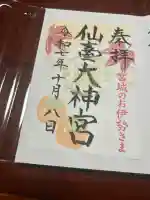 奉拝
宮城のお伊勢さま
仙臺大神宮
令和七年十月八日